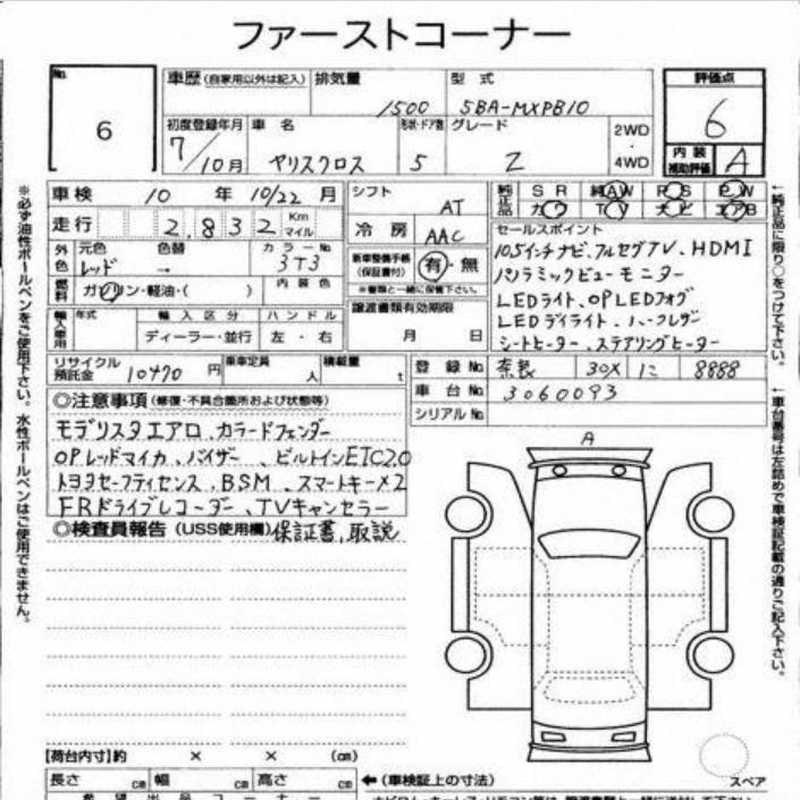 ファーストコーナー
No. 6
車歴 (自家用以外は記入) 排気量 1500 型式 5BA-MXPB10
評価点 6
内装補助評価 A
初度登録年月 7/10月 車名 ヤリスクロス 形状・ドア数 5 グレード Z 2WD・4WD
車検 10年 10/22月 シフト AT
純正品 SR 純AW PS PW
カワ TV ナビ エアB
走行 2,832 Km マイル 冷房 AAC
外色 元色 レッド 色替 → カラーNo. 3T3
新車整備手帳 (保証書付) 有・無
※書類と一緒に保管下さい。
燃料 ガソリン・軽油・( ) 内装色
輸入車用 年式 輸入区分 ハンドル
ディーラー・並行 左・右
譲渡書類有効期限
月 日
セールスポイント
10.5インチナビ、フルセグTV、HDMI
パノラミックビューモニター
LEDライト、OPLEDフォグ
LEDデイライト、ハーフレザー
シートヒーター、ステアリングヒーター
リサイクル預託金 10470円 乗車定員 人 積載量 t
登録No. 奈良 30X に 8888
車台No. 3060093
シリアルNo.
◎注意事項 (修復・不具合箇所および状態等)
モデリスタエアロ、カラードフェンダー
OPレッドマイカ、バイザー、ビルトインETC2.0
トヨタセーフティセンス、BSM、スマートキー×2
FRドライブレコーダー、TVキャンセラー
◎検査員報告 (USS使用欄) 保証書、取説
A
【荷台内寸】約 × × (cm)
長さ cm 幅 cm 高さ cm
←(車検証上の寸法)
スペア
希望出品コーナー
※必ず油性ボールペンをご使用下さい。水性ボールペンはご使用できません。
←純正品に限り○をつけて下さい。
←車台番号は左詰めで車検証記載の通りご記入下さい。